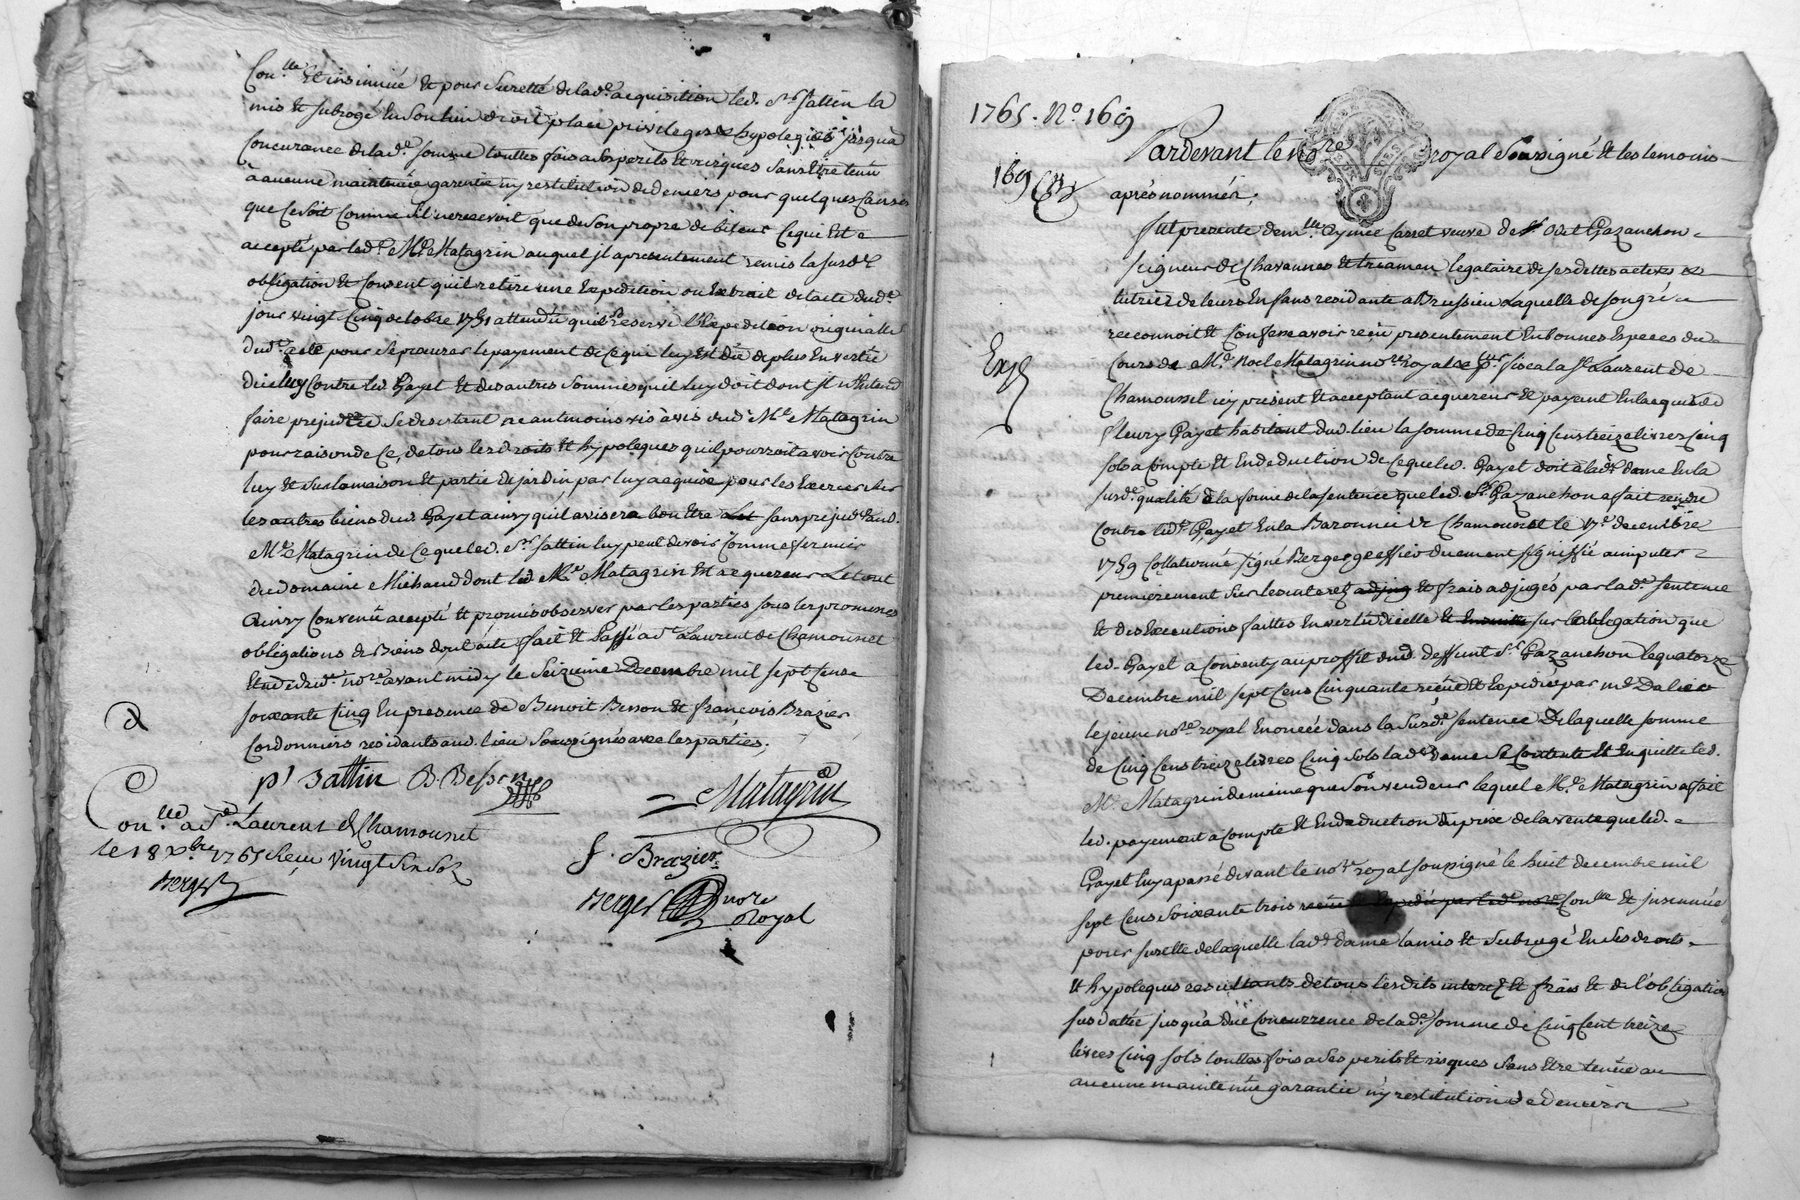 Con.lle Et insinuée Et pour Sureté de lad.e acquisition led. Sr. Sattin la
mis Et subrogé En Son lieu droit place privileges & hypoteques jusqua
Concurance de lad.e somme touttes fois a ses perils Et risques Sans Etre tenu
à aucune maintenüe garentie ny restitution de deniers pour quelques Causes
que Ce Soit Comme Il ne recevoit que de Son propre debiteur Ce qui Est
accepté par led. Me. Matagrin auquel jl a presentement remis la susd.e
obligation Et Consent quil retire une Expedition ou Extrait de lacte dud.
jour vingt Cinq octobre 1751 attendû quil se reserve l'Expedition originalle
dud. acte pour se procurer le payement de Ce qui luy Est dû de plus En vertu
dicelluy Contre led. Gayet Et des autres Sommes quil luy doit dont jl n'Entend
faire prejudice Se desistant neantmoins vis à vis dud. Me. Matagrin
pour raison de Ce, de tous les droits Et hypoteques quil pourroit avoir Contre
luy Et Sur la maison Et partie de jardin par luy acquise pour les Exercer sur
les autres biens dud. Gayet ainsy quil avisera bon Etre sans prejud. aud.
Me. Matagrin de Ce que led. Sr. Sattin luy peut devoir Comme fermier
du domaine Michaud dont led. Me. Matagrin Est acquereur Le tout
Ainsy Convenû accepté Et promis observer par les parties sous les promesses
obligations & Biens dont acte fait Et Passé a St. Laurent de Chamousset
Etude dud. nore. avant midy le Seizieme Decembre mil sept Cens
soixante Cinq En presence de Benoit Besson Et francois Brazier
Cordonniers residants aud. lieu Soussignés avec les parties.
p' Sattin B. Besson Matagrin
Con.lle a St. Laurent de Chamousset
le 18 Xbre 1765 Reçu vingt Six Sols
Berger
f. Brazier
Berger nore Royal
1765. No. 169
Pardevant le Nore royal Soussigné Et les temoins
169
aprés nommés;
fut presente dem.lle Aymée Carret veuve de Sr Gazanchon
Seigneur de Chavannes Et legataire de ses dettes actives &
tutrice de leurs Enfans residante a Brussieu Laquelle de son gré
reconnoit Et Confesse avoir reçu presentement En bonnes Especes du
Expé
Cours de Me. Noel Matagrin nore. royal & pr. fiscal a St. Laurent de
Chamousset icy present Et acceptant acquereur Et payant En lacquit de
fleury Gayet habitant dud. lieu la somme de Cinq Cens treize livres Cinq
sols a Compte Et En deduction de Ce que led. Gayet doit à lad. dame En la
susd. qualité à la forme de la sentence que led. Sr. Gazanchon a fait rendre
Contre led. Gayet En la Baronnie de Chamousset le 17e. decembre
1759 Collationné signé Berger greffier duement signiffié a imputer
premierement sur les interets adjug Et frais adjugés par lad. sentence
Et des Executions faittes En vertu dicelle Et Ensuitte sur lobligation que
led. Gayet a Consenty au proffit dud. deffunt Sr. Gazanchon le quatorze
Decembre mil sept Cens Cinquante reçûe Et Expediée par me. Dalier
le jeune nore. royal Enoncée dans la Susd. sentence De laquelle somme
de Cinq Cens treize livres Cinq sols lad. dame Se Contente Et En quitte led.
Me. Matagrin de meme que Son vendeur lequel Me. Matagrin a fait
led. payement a Compte Et En deduction du prix de la vente que led.
Gayet luy a passé devant le nore. royal soussigné le huit decembre mil
sept Cens Soixante trois reçûe & Expediée par led. nore Con.lle Et jnsinuée
pour sureté de laquelle lad. dame la mis Et Subrogé En Ses droits
Et hypoteques resultants de tous lesdits interets Et frais Et de l'obligation
sus dattée jusqu'a dûe Concurrence de lad. somme de Cinq Cent treize
livres Cinq sols touttes fois a Ses perils Et risques Sans Etre tenüe a
aucune maintenüe garantie ny restitution de deniers